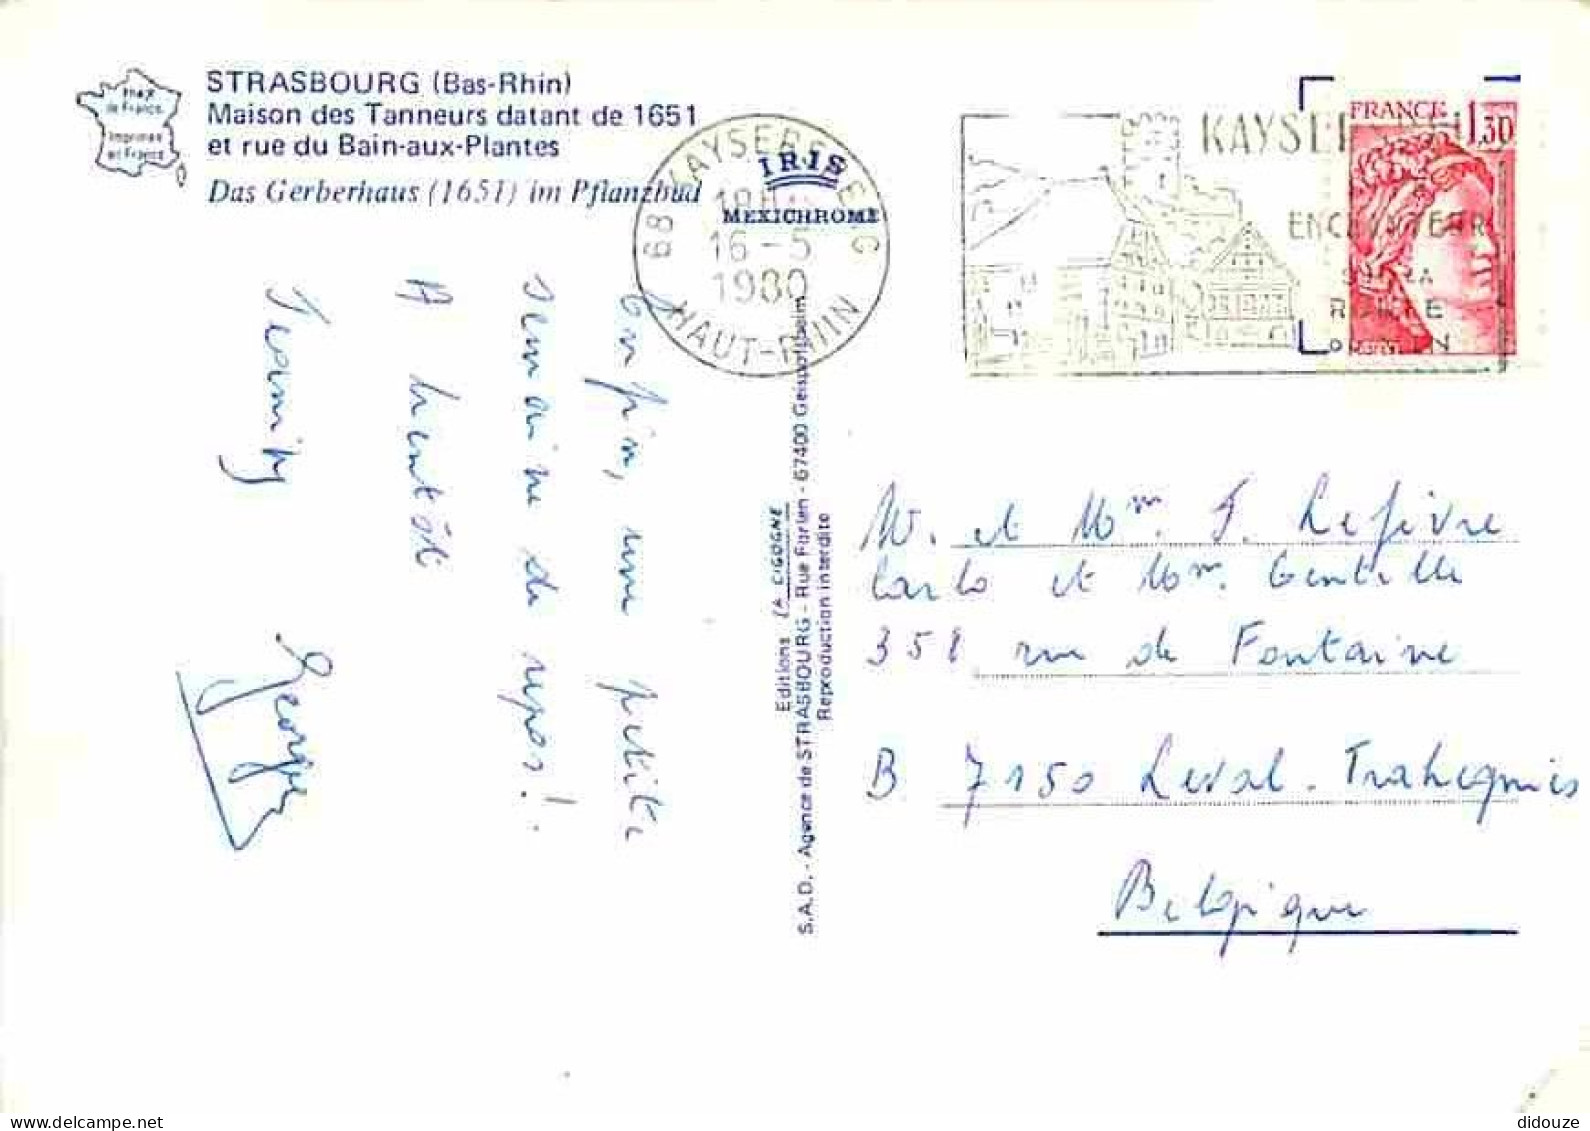 STRASBOURG (Bas-Rhin)
Maison des Tanneurs datant de 1651
et rue du Bain-aux-Plantes
Das Gerberhaus (1651) im Pflanzbad
de France
Imprimée
en France
IRIS
MEXICHROME
68 KAYSERSBERG
16-5
1980
HAUT-RHIN
FRANCE
1,30
Enfin, une petite
semaine de repos!
A bientôt
Jeanny Georges
Editions LA CIGOGNE
S.A.D. - Agence de STRASBOURG - Rue Forlen - 67400 Geispolsheim
Reproduction interdite
M. et Mme. F. Lefèvre
Carlo et Mme. Gentille
358 rue de Fontaine
B 7150 Leval-Trahegnies
Belgique
didouze